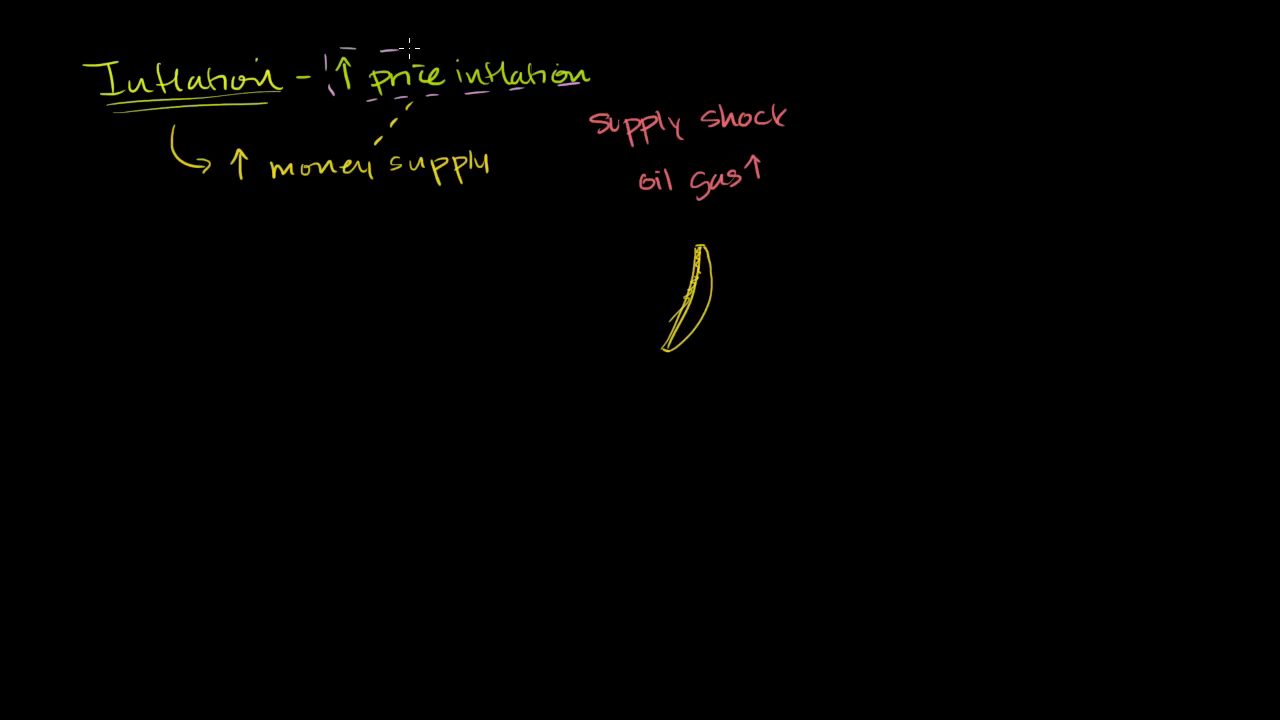 Inflation - ↑ price inflation
↑ money supply
supply shock
oil gas ↑